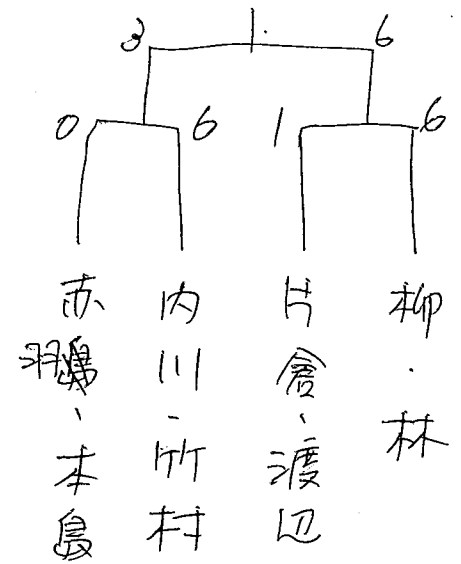 3 6
0 6 1 6
赤羽・本島
内川・竹村
片倉・渡辺
柳・林